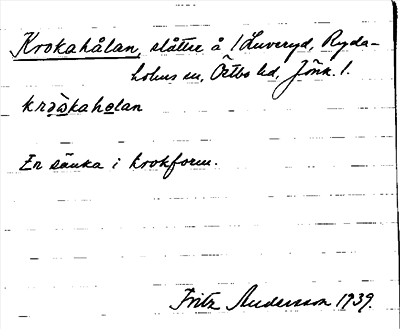 Krokahålan, slåtter å 1 Luveryd, Ryda-
holms sn, Östbo hd, Jönk. l.
krɔ̀skahɵlan
En sänka i krokform.
Fritz Andersson 1939.